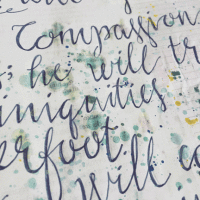 Compassion
; he will tr
iniquities
erfoot
will c